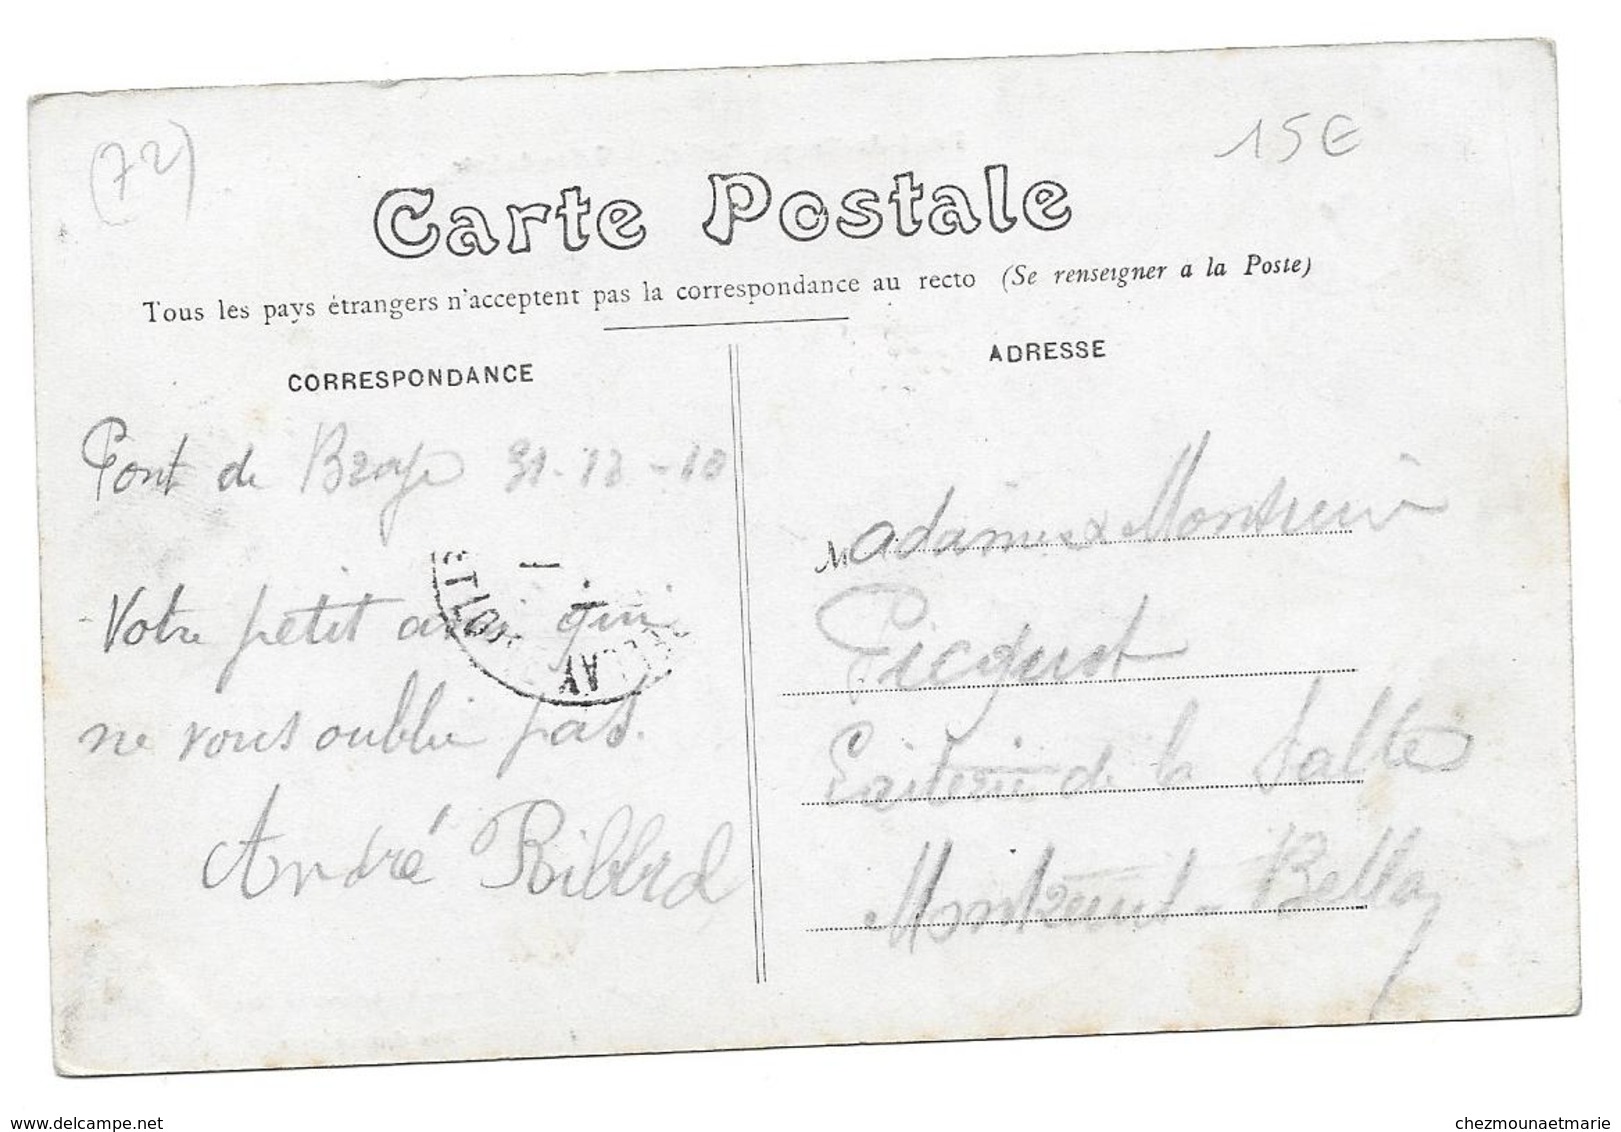 (72)
15€
Carte Postale
Tous les pays étrangers n'acceptent pas la correspondance au recto (Se renseigner a la Poste)
CORRESPONDANCE
ADRESSE
Pont de Braye 31-12-10
Votre petit ami qui
ne vous oublie pas.
André Ribard
Madame
Picquet
Laiterie de la Salle
Montreuil-Bellay
chezmounaetmarie